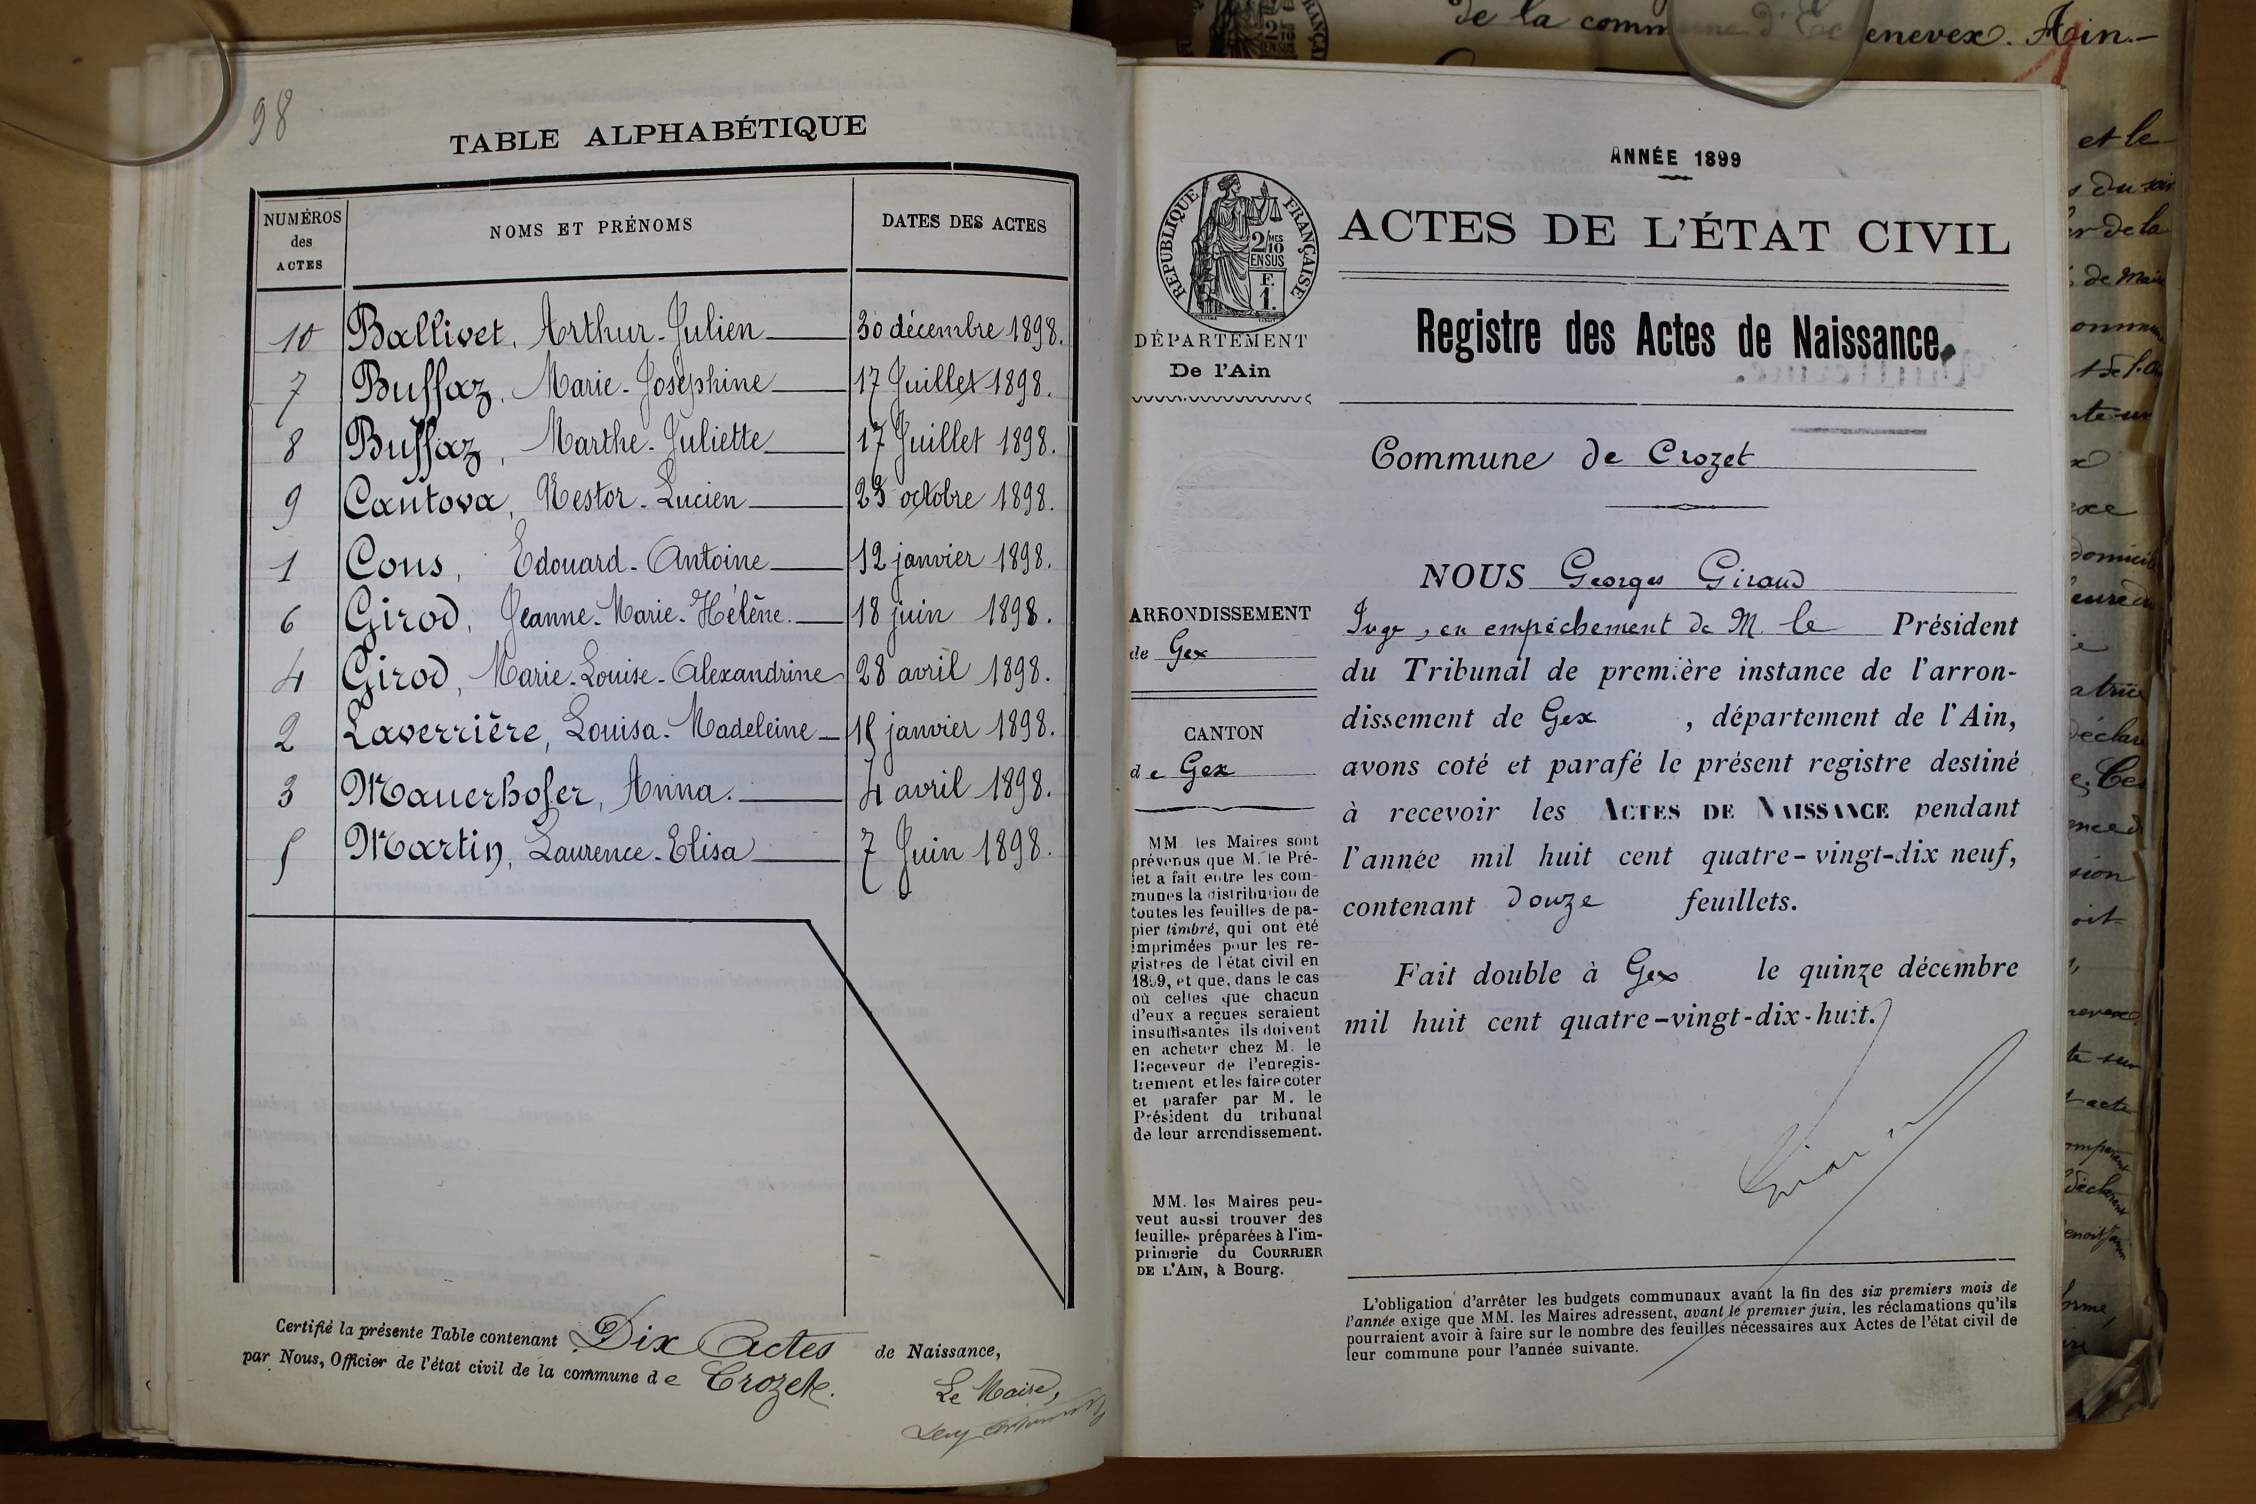 98
TABLE ALPHABÉTIQUE
NUMÉROS des ACTES NOMS ET PRÉNOMS DATES DES ACTES
10 Ballivet, Arthur-Julien 30 décembre 1898.
7 Buffaz, Marie-Joséphine 17 Juillet 1898.
8 Buffaz, Marthe-Juliette 17 Juillet 1898.
9 Cantova, Nestor-Lucien 23 octobre 1898.
1 Cons, Edouard-Antoine 12 janvier 1898.
6 Girod, Jeanne-Marie-Hélène. 18 juin 1898.
4 Girod, Marie-Louise-Alexandrine 28 avril 1898.
2 Laverrière, Louisa-Madeleine 15 janvier 1898.
3 Mauerhofer, Anna. 4 avril 1898.
5 Martin, Laurence-Elisa 7 Juin 1898.
Certifié la présente Table contenant Dix Actes de Naissance,
par Nous, Officier de l'état civil de la commune de Crozet.
Le Maire,
de la commune d'Echenevex. Ain.-
ANNÉE 1899
RÉPUBLIQUE FRANÇAISE
2/10 MES
EN SUS
F.
1.
ACTES DE L'ÉTAT CIVIL
Registre des Actes de Naissance
DÉPARTEMENT
De l'Ain
Commune de Crozet
ARRONDISSEMENT
de Gex
CANTON
de Gex
MM les Maires sont
prévenus que M. le Pré-
fet a fait entre les com-
munes la distribution de
toutes les feuilles de pa-
pier timbré, qui ont été
imprimées pour les re-
gistres de l'état civil en
1899, et que, dans le cas
où celles que chacun
d'eux a reçues seraient
insuffisantes ils doivent
en acheter chez M. le
Receveur de l'enregis-
trement et les faire coter
et parafer par M. le
Président du tribunal
de leur arrondissement.
MM. les Maires peu-
vent aussi trouver des
feuilles préparées à l'im-
primerie du COURRIER
DE L'AIN, à Bourg.
NOUS Georges Giraud
Juge, en empêchement de M. le Président
du Tribunal de première instance de l'arron-
dissement de Gex , département de l'Ain,
avons coté et parafé le présent registre destiné
à recevoir les ACTES DE NAISSANCE pendant
l'année mil huit cent quatre-vingt-dix neuf,
contenant douze feuillets.
Fait double à Gex le quinze décembre
mil huit cent quatre-vingt-dix-huit.
Giraud
L'obligation d'arrêter les budgets communaux avant la fin des six premiers mois de
l'année exige que MM. les Maires adressent, avant le premier juin, les réclamations qu'ils
pourraient avoir à faire sur le nombre des feuilles nécessaires aux Actes de l'état civil de
leur commune pour l'année suivante.
et le
du soir
de la
de Mai
domicil
déclar
acte